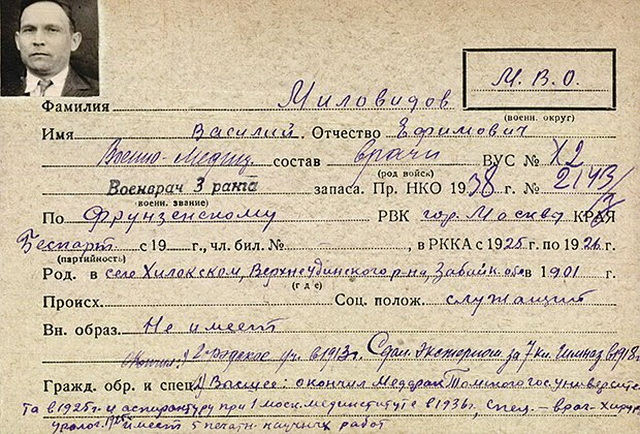 М.В.О.
Фамилия Миловидов
(военн. округ)
Имя Василий. Отчество Ефимович
Военно-Медиц. состав врачи ВУС № X2
(род войск)
Военврач 3 ранга запаса. Пр. НКО 1938 г. № 2143/
(военн. звание)
По Фрунзенскому РВК гор. Москва КРАЯ
Беспарт. с 19 г., чл. бил. № , в РККА с 1925 г. по 1926 г.
(партийность)
Род. в селе Хилокском, Верхнеудинского р-на, Забайк. обл. в 1901 г.
(где)
Происх. Соц. полож. служащий
Вн. образ. Не имеет
2 городское уч. в 1913г. Сдал экстерном за 7 кл. гимназ в 1918г.
Гражд. обр. и спец. Высшее: окончил Медфак Томского гос. университе
та в 1925г. и аспирантуру при 1 моск. мединституте в 1936г, спец. - врач-хирург
уролог. имеет 5 печатн. научных работ